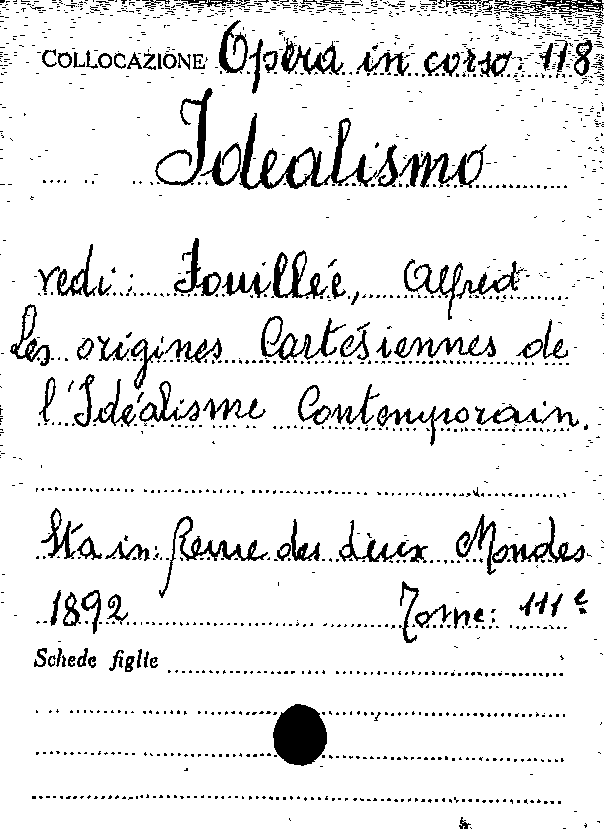 COLLOCAZIONE Opera in corso. 118
Idealismo
vedi: Fouillée, Alfred
Les origines Cartésiennes de
l'Idéalisme Contemporain.
Sta in: Revue des deux Mondes
1892 Tome: 111e
Schede figlie